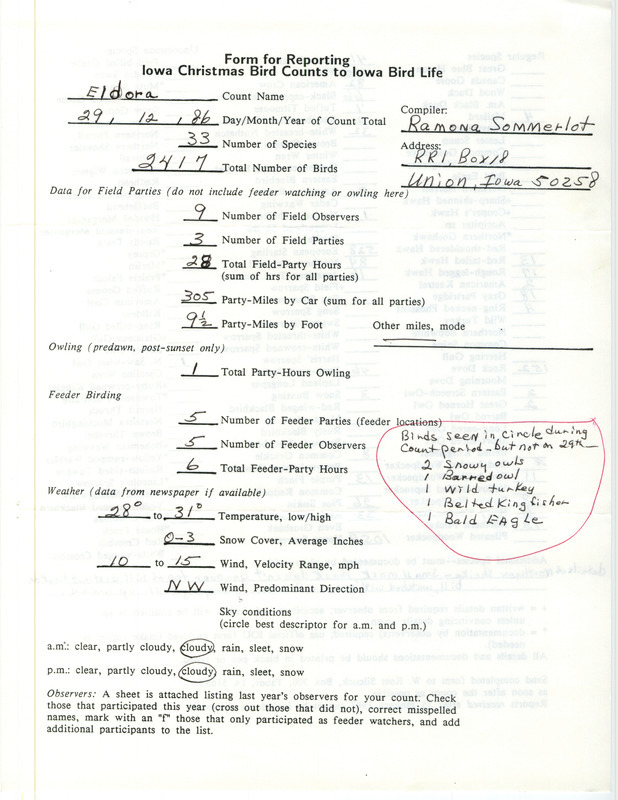 Form for Reporting
Iowa Christmas Bird Counts to Iowa Bird Life
Eldora Count Name
29, 12, 86 Day/Month/Year of Count Total
33 Number of Species
2417 Total Number of Birds
Compiler:
Ramona Sommerlot
Address:
RR1, Box 18
Union, Iowa 50258
Data for Field Parties (do not include feeder watching or owling here)
9 Number of Field Observers
3 Number of Field Parties
28 Total Field-Party Hours
(sum of hrs for all parties)
305 Party-Miles by Car (sum for all parties)
9½ Party-Miles by Foot Other miles, mode
Owling (predawn, post-sunset only)
1 Total Party-Hours Owling
Feeder Birding
5 Number of Feeder Parties (feeder locations)
5 Number of Feeder Observers
6 Total Feeder-Party Hours
Birds seen in circle during
Count period - but not on 29th
2 Snowy owls
1 Barred owl
1 Wild turkey
1 Belted Kingfisher
1 Bald EAgle
Weather (data from newspaper if available)
28° to 31° Temperature, low/high
0-3 Snow Cover, Average Inches
10 to 15 Wind, Velocity Range, mph
NW Wind, Predominant Direction
Sky conditions
(circle best descriptor for a.m. and p.m.)
a.m.: clear, partly cloudy, cloudy, rain, sleet, snow
p.m.: clear, partly cloudy, cloudy, rain, sleet, snow
Observers: A sheet is attached listing last year's observers for your count. Check
those that participated this year (cross out those that did not), correct misspelled
names, mark with an "f" those that only participated as feeder watchers, and add
additional participants to the list.